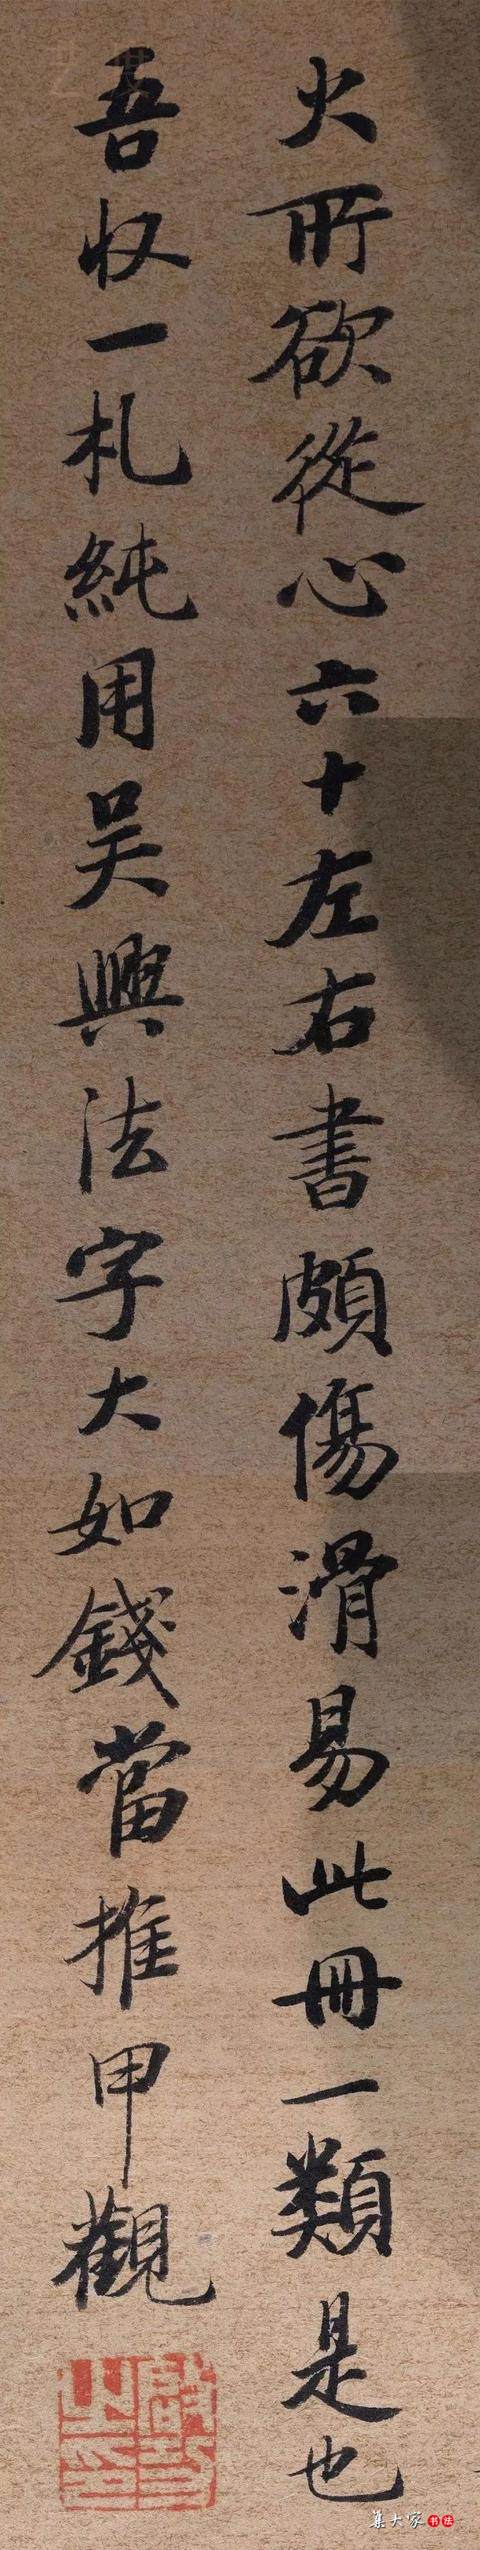 火所欲從心六十左右書頗傷滑易此冊一類是也
吾收一札純用吴興法字大如錢當推甲觀
集大家书法